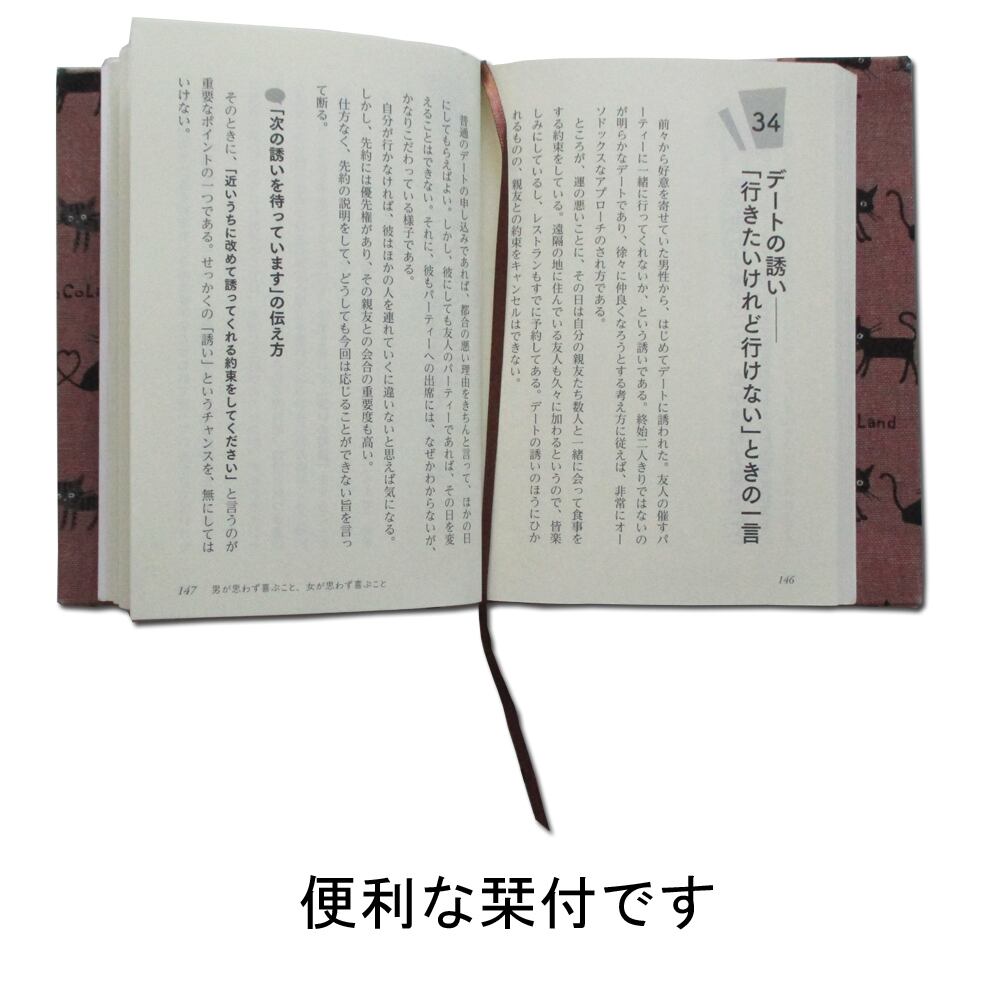 34
デートの誘い――
「行きたいけれど行けない」ときの一言
前々から好意を寄せていた男性から、はじめてデートに誘われた。友人の催すパ
ーティーに一緒に行ってくれないか、という誘いである。終始二人きりではないの
が明らかなデートであり、徐々に仲良くなろうとする考え方に従えば、非常にオー
ソドックスなアプローチのされ方である。
ところが、運の悪いことに、その日は自分の親友たち数人と一緒に会って食事を
する約束をしている。遠隔の地に住んでいる友人も久々に加わるというので、皆楽
しみにしているし、レストランもすでに予約してある。デートの誘いのほうにひか
れるものの、親友との約束をキャンセルはできない。
146
普通のデートの申し込みであれば、都合の悪い理由をきちんと言って、ほかの日
にしてもらえばよい。しかし、彼にしても友人のパーティーであれば、その日を変
えることはできない。それに、彼もパーティーへの出席には、なぜかわからないが、
かなりこだわっている様子である。
自分が行かなければ、彼はほかの人を連れていくに違いないと思えば気になる。
しかし、先約には優先権があり、その親友との会合の重要度も高い。
仕方なく、先約の説明をして、どうしても今回は応じることができない旨を言っ
て断る。
「次の誘いを待っています」の伝え方
そのときに、「近いうちに改めて誘ってくれる約束をしてください」と言うのが
重要なポイントの一つである。せっかくの「誘い」というチャンスを、無にしては
いけない。
147 男が思わず喜ぶこと、女が思わず喜ぶこと
CoLa
Land
便利な栞付です